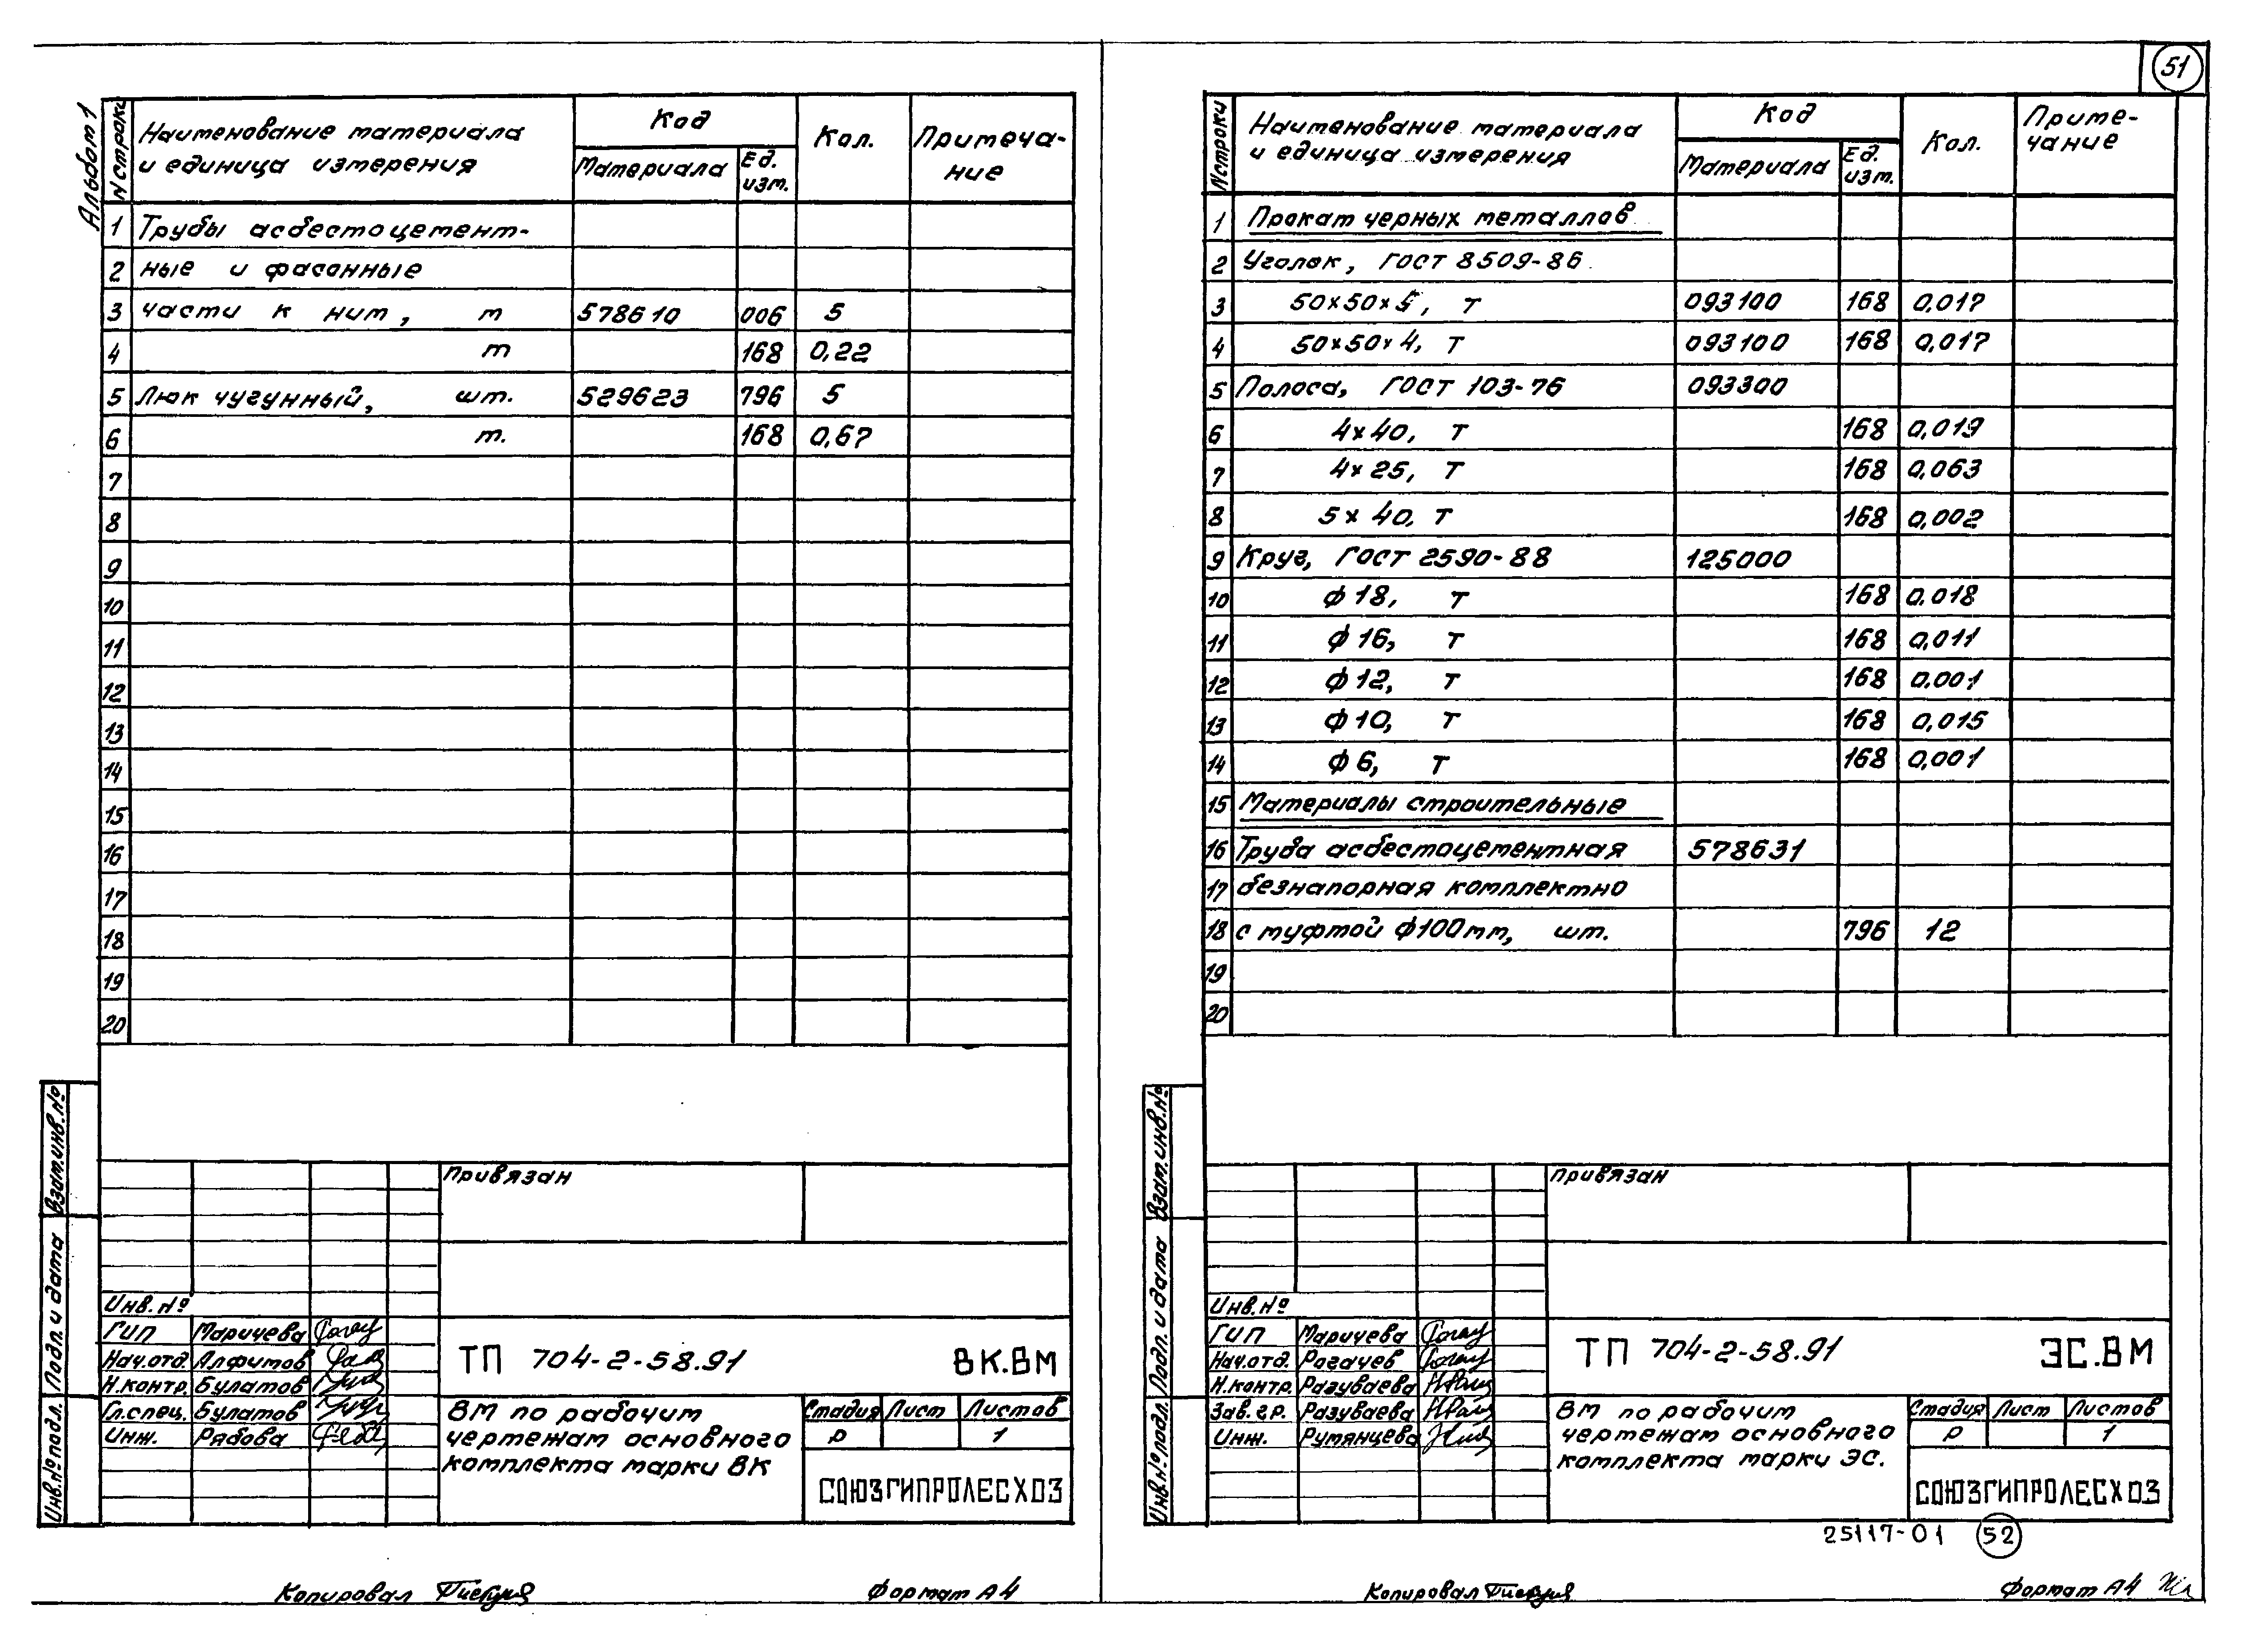 51
Альбом 1
N строки
Наименование материала
и единица измерения
Код
Материала
Ед.
изм.
Кол.
Примеча-
ние
1 Трубы асбестоцемент-
2 ные и фасонные
3 части к ним, м 578610 006 5
4 т 168 0,22
5 Люк чугунный, шт. 529623 796 5
6 т. 168 0,67
7
8
9
10
11
12
13
14
15
16
17
18
19
20
Взам.инв.№
Подп. и дата
Инв.№ подл.
Привязан
Инв.№
ГИП Маричева
Нач.отд. Алфитов
Н.контр. Булатов
Гл.спец. Булатов
Инж. Рябова
ТП 704-2-58.91 ВК.ВМ
ВМ по рабочим
чертежам основного
комплекта марки ВК
Стадия Лист Листов
Р 1
СОЮЗГИПРОЛЕСХОЗ
Копировал
Формат А4
N строки
Наименование материала
и единица измерения
Код
Материала
Ед.
изм.
Кол.
Приме-
чание
1 Прокат черных металлов
2 Уголок, ГОСТ 8509-86
3 50×50×5, т 093100 168 0,017
4 50×50×4, т 093100 168 0,017
5 Полоса, ГОСТ 103-76 093300
6 4×40, т 168 0,019
7 4×25, т 168 0,063
8 5×40, т 168 0,002
9 Круг, ГОСТ 2590-88 125000
10 ф 18, т 168 0,018
11 ф 16, т 168 0,011
12 ф 12, т 168 0,001
13 ф 10, т 168 0,015
14 ф 6, т 168 0,001
15 Материалы строительные
16 Труба асбестоцементная 578631
17 безнапорная комплектно
18 с муфтой ф100мм, шт. 796 12
19
20
Взам.инв.№
Подп. и дата
Инв.№ подл.
Привязан
Инв.№
ГИП Маричева
Нач.отд. Рогачев
Н.контр. Разуваева
Зав. гр. Разуваева
Инж. Румянцева
ТП 704-2-58.91 ЭС.ВМ
ВМ по рабочим
чертежам основного
комплекта марки ЭС.
Стадия Лист Листов
Р 1
СОЮЗГИПРОЛЕСХОЗ
25117-01 52
Копировал
Формат А4